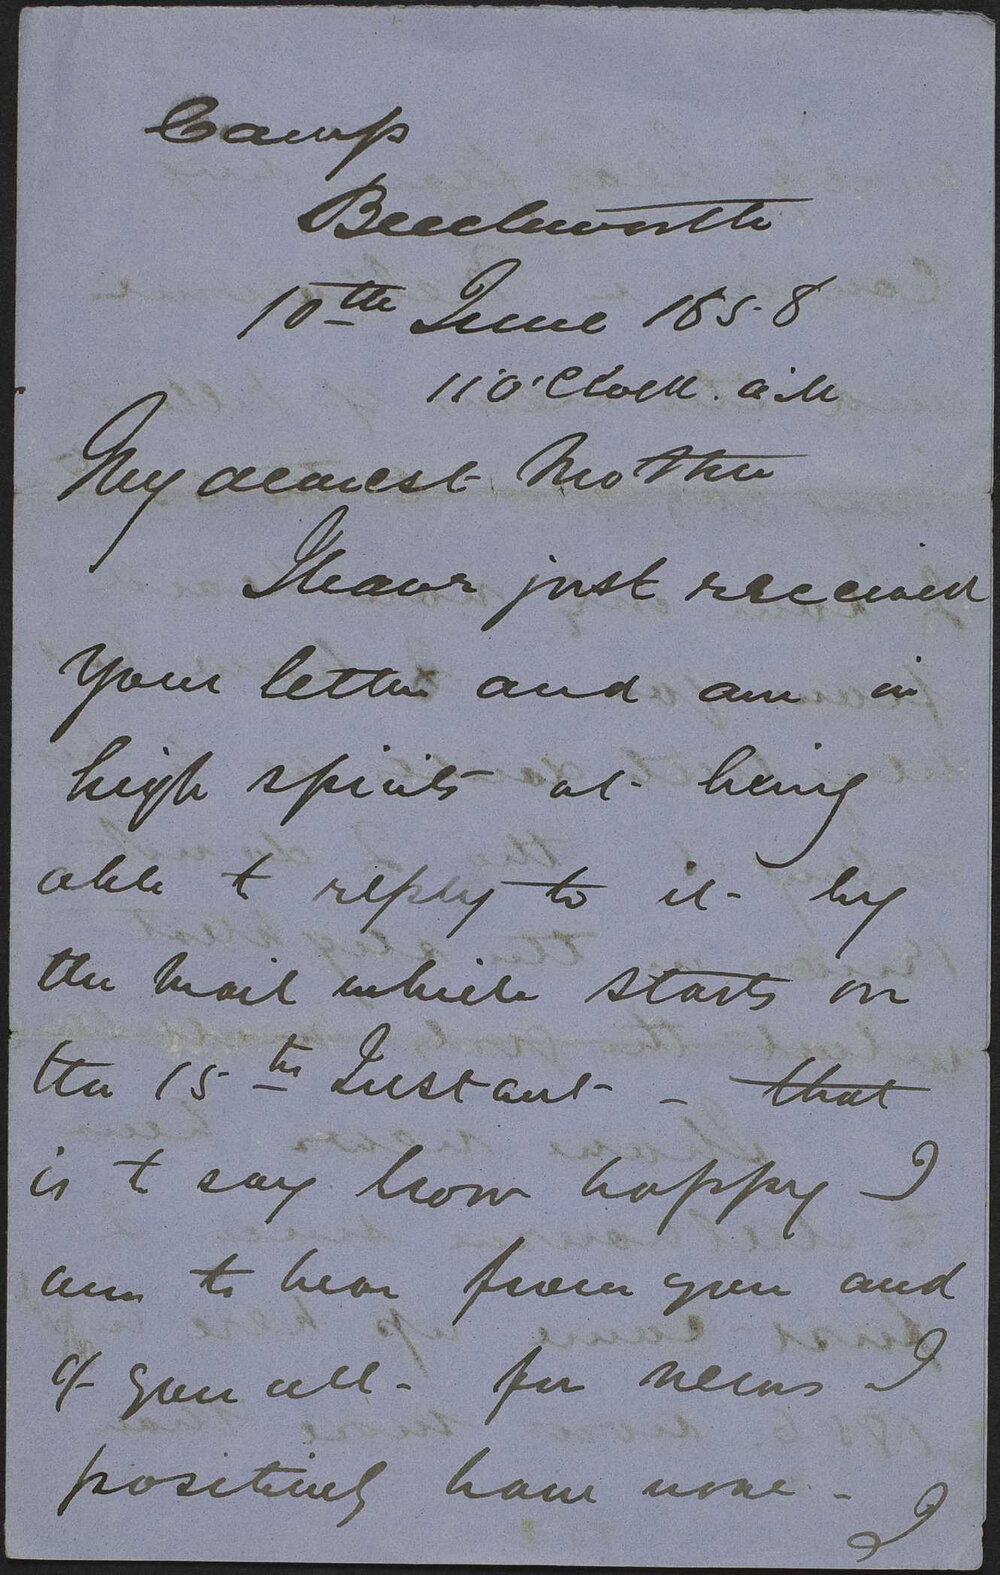 Camp
Beechworth
10th June 1858
11 O'Clock. a.m
My dearest Mother
I have just received
your letter and am in
high spirits at being
able to reply to it by
the mail which starts on
the 15th Instant - that
is to say how happy I
am to hear from you and
of you all - for news I
positively have none - I